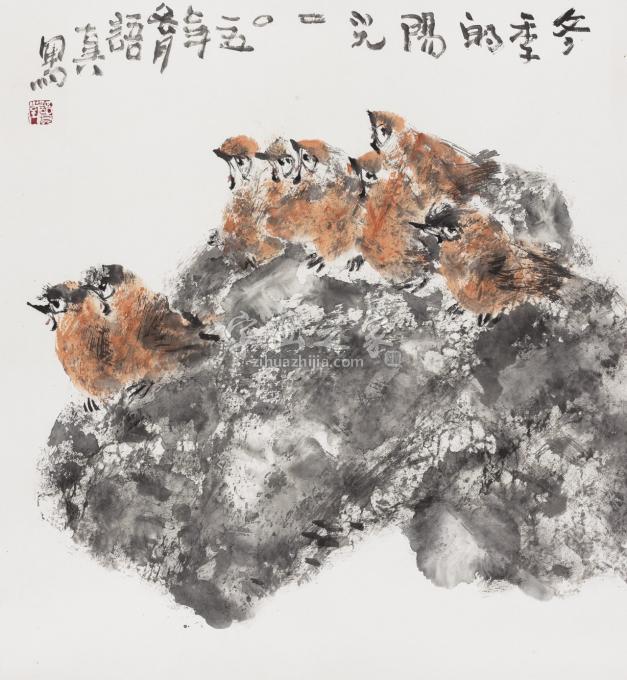 冬季的陽光二〇〇五年語真寫
字画之家
zihuazhijia.com